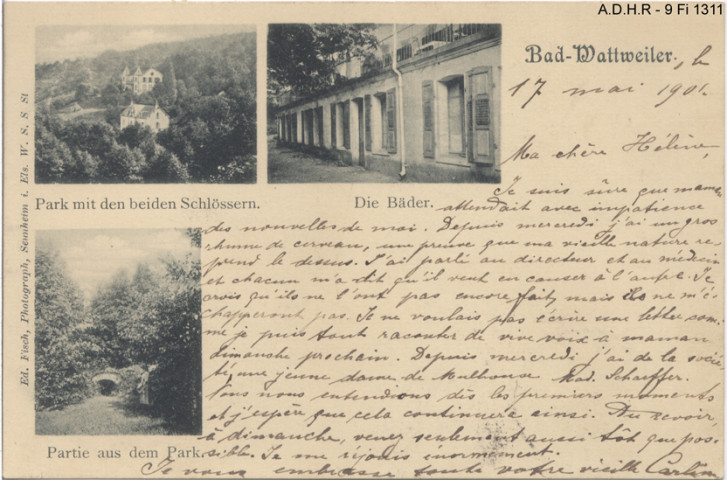 A.D.H.R - 9 Fi 1311
Bad-Wattweiler, le
17 mai 1901.
Ma chère Hélène,
Je suis sûre que maman
attendait avec impatience
des nouvelles de moi. Depuis mercredi j'ai un gros
rhume de cerveau, une preuve que ma vieille nature re-
prend le dessus. J'ai parlé au directeur et au médecin
et chacun m'a dit qu'il veut en causer à l'autre. Je
crois qu'ils ne l'ont pas encore fait, mais ils ne m'é-
chapperont pas. Je ne voulais pas écrire une lettre com-
me je puis tout raconter de vive voix à maman
dimanche prochain. Depuis mercredi j'ai de la socié-
té, une jeune dame de Mulhouse Mad. Schaeffer.
Nous nous entendions dès les premiers moments
et j'espère que cela continuera ainsi. Au revoir,
à dimanche, venez seulement aussi tôt que pos-
sible. Je me réjouis énormément.
Je vous embrasse toute votre vieille
Park mit den beiden Schlössern.
Die Bäder.
Partie aus dem Park.
Ed. Fisch, Photograph, Sennheim i. Els. W. S. S. St